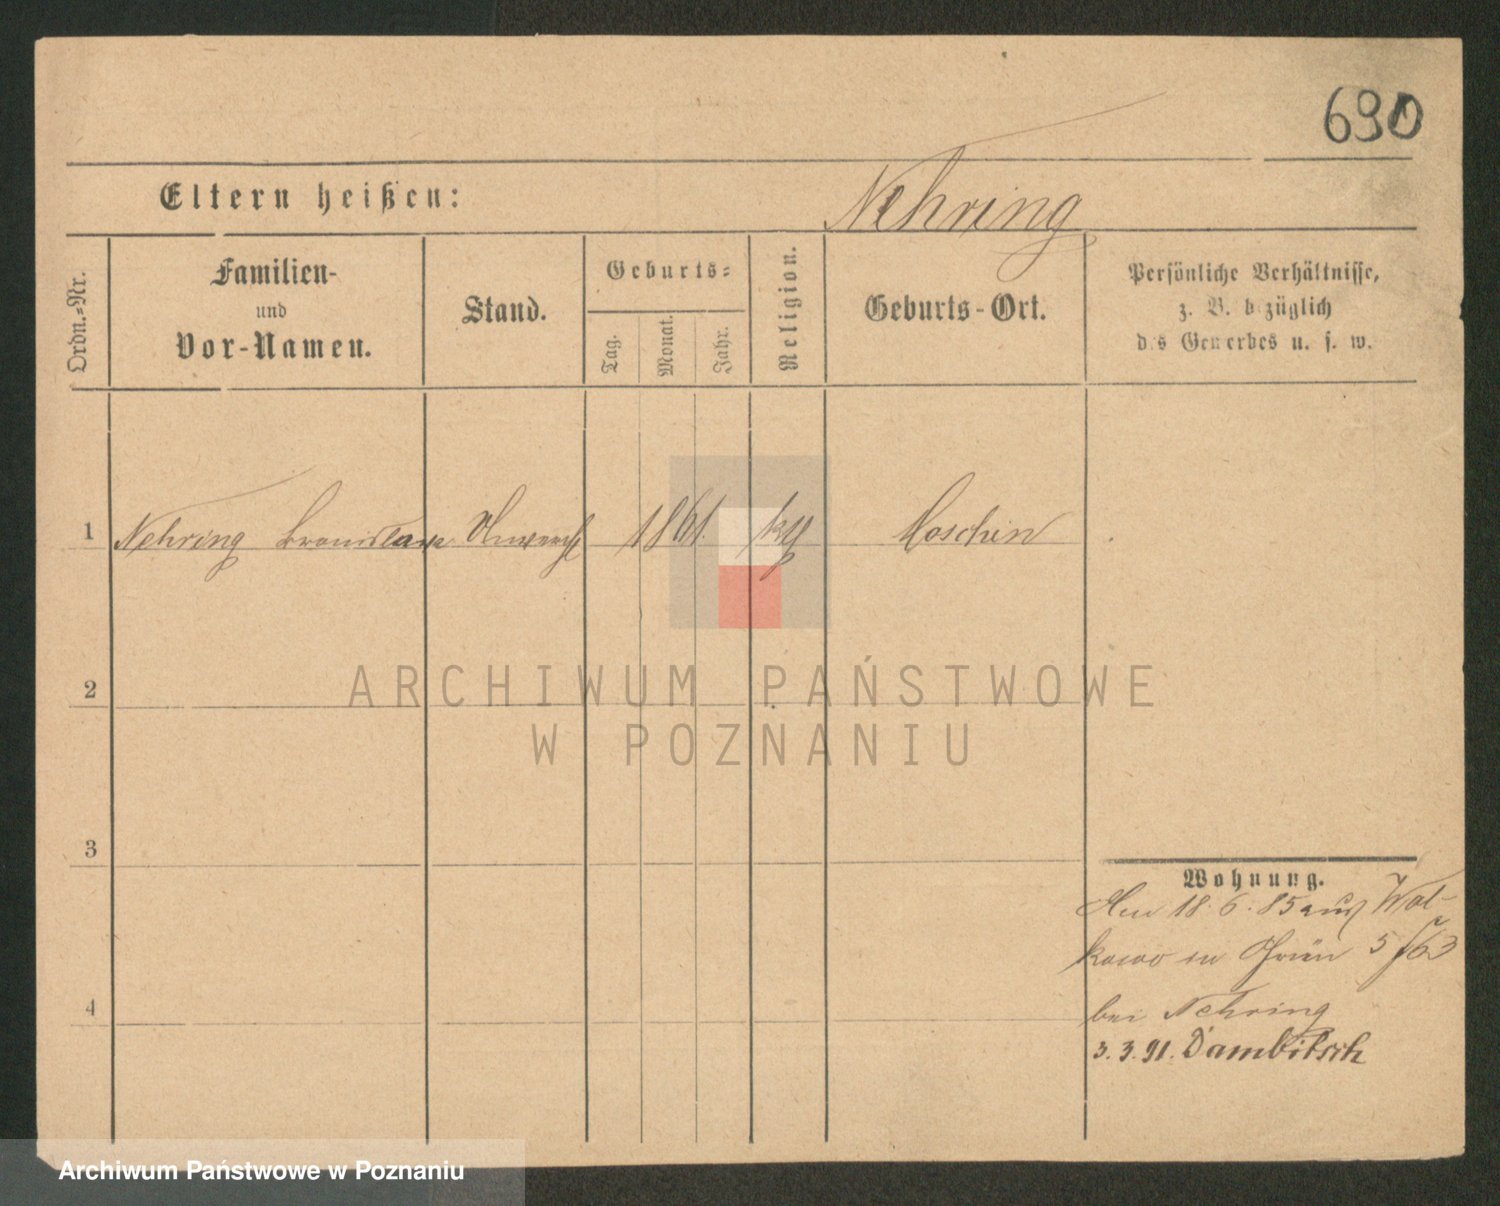 690
Eltern heißen:
Nehring
Ordn.=Nr.
Familien-
und
Vor-Namen.
Stand.
Geburts=
Tag.
Monat.
Jahr.
Religion.
Geburts-Ort.
Persönliche Verhältnisse,
z. B. bezüglich
des Gewerbes u. s. w.
1 Nehring Bronislawa 1861. Moschin
2
3
4
ARCHIWUM PAŃSTWOWE
W POZNANIU
Wohnung.
18. 6. 85 aus Wol-
kowo in 5/63
bei Nehring
3. 3. 91. Dambitsch
Archiwum Państwowe w Poznaniu